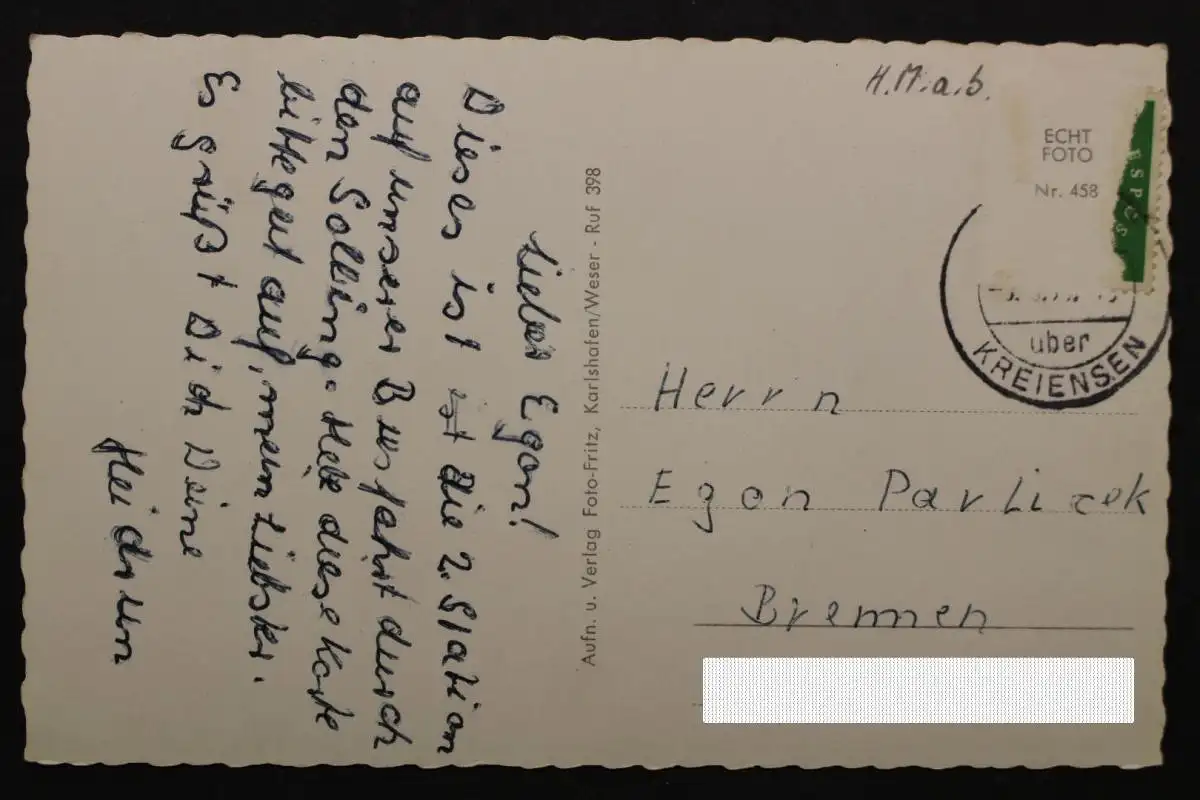 Lieber Egon!
Dieses ist ist die 2. Station
auf unserer Busfahrt durch
den Solling. Hebe diese Karte
bitte gut auf, mein Liebster.
Es grüßt Dich Deine
Heidrun
Aufn. u. Verlag Foto-Fritz, Karlshafen/Weser - Ruf 398
H.M.a.b.
ECHT
FOTO
Nr. 458
über
KREIENSEN
Herrn
Egon Pavlicek
Bremen